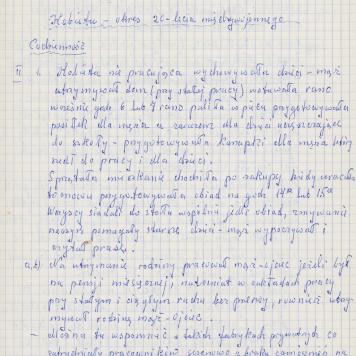 Kobieta - okres 20-lecia międzywojennego
Codzienność
II 1. Kobieta nie pracująca wychowywała dzieci - mąż
utrzymywał dom (przy stałej pracy) wstawała rano
wcześnie godz 6 lub 7 rano paliła w piecu przygotowywała
posiłek dla męża a zarazem dla dzieci uczęszczające
do szkoły - przygotowywała kanapki dla męża który
szedł do pracy i dla dzieci.
Sprzątała mieszkanie chodziła po zakupy, kiedy wracała
to znowu przygotowywała obiad na godz 14ª lub 15ª
Wszyscy siadali do stołu wspólnie jedli obiad, zmywanie
naczyń pomagały starsze dzieci - mąż wypoczywał i
czytał prasę.
a,b) Na utrzymanie rodziny pracował mąż - ojciec jeżeli był
na pensji miesięcznej, natomiast w zakładach pracy
przy stałym i ciągłym ruchu bez przerwy, również utrzy-
mywał rodzinę mąż - ojciec.
- Można tu wspomnieć o takich fabrykach prywatnych co
zatrudniały pracowników sezonowo z braku zamówień na